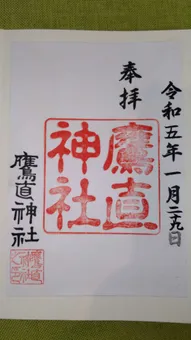 令和五年一月二九日
奉拝
鷹直神社
鷹直神社